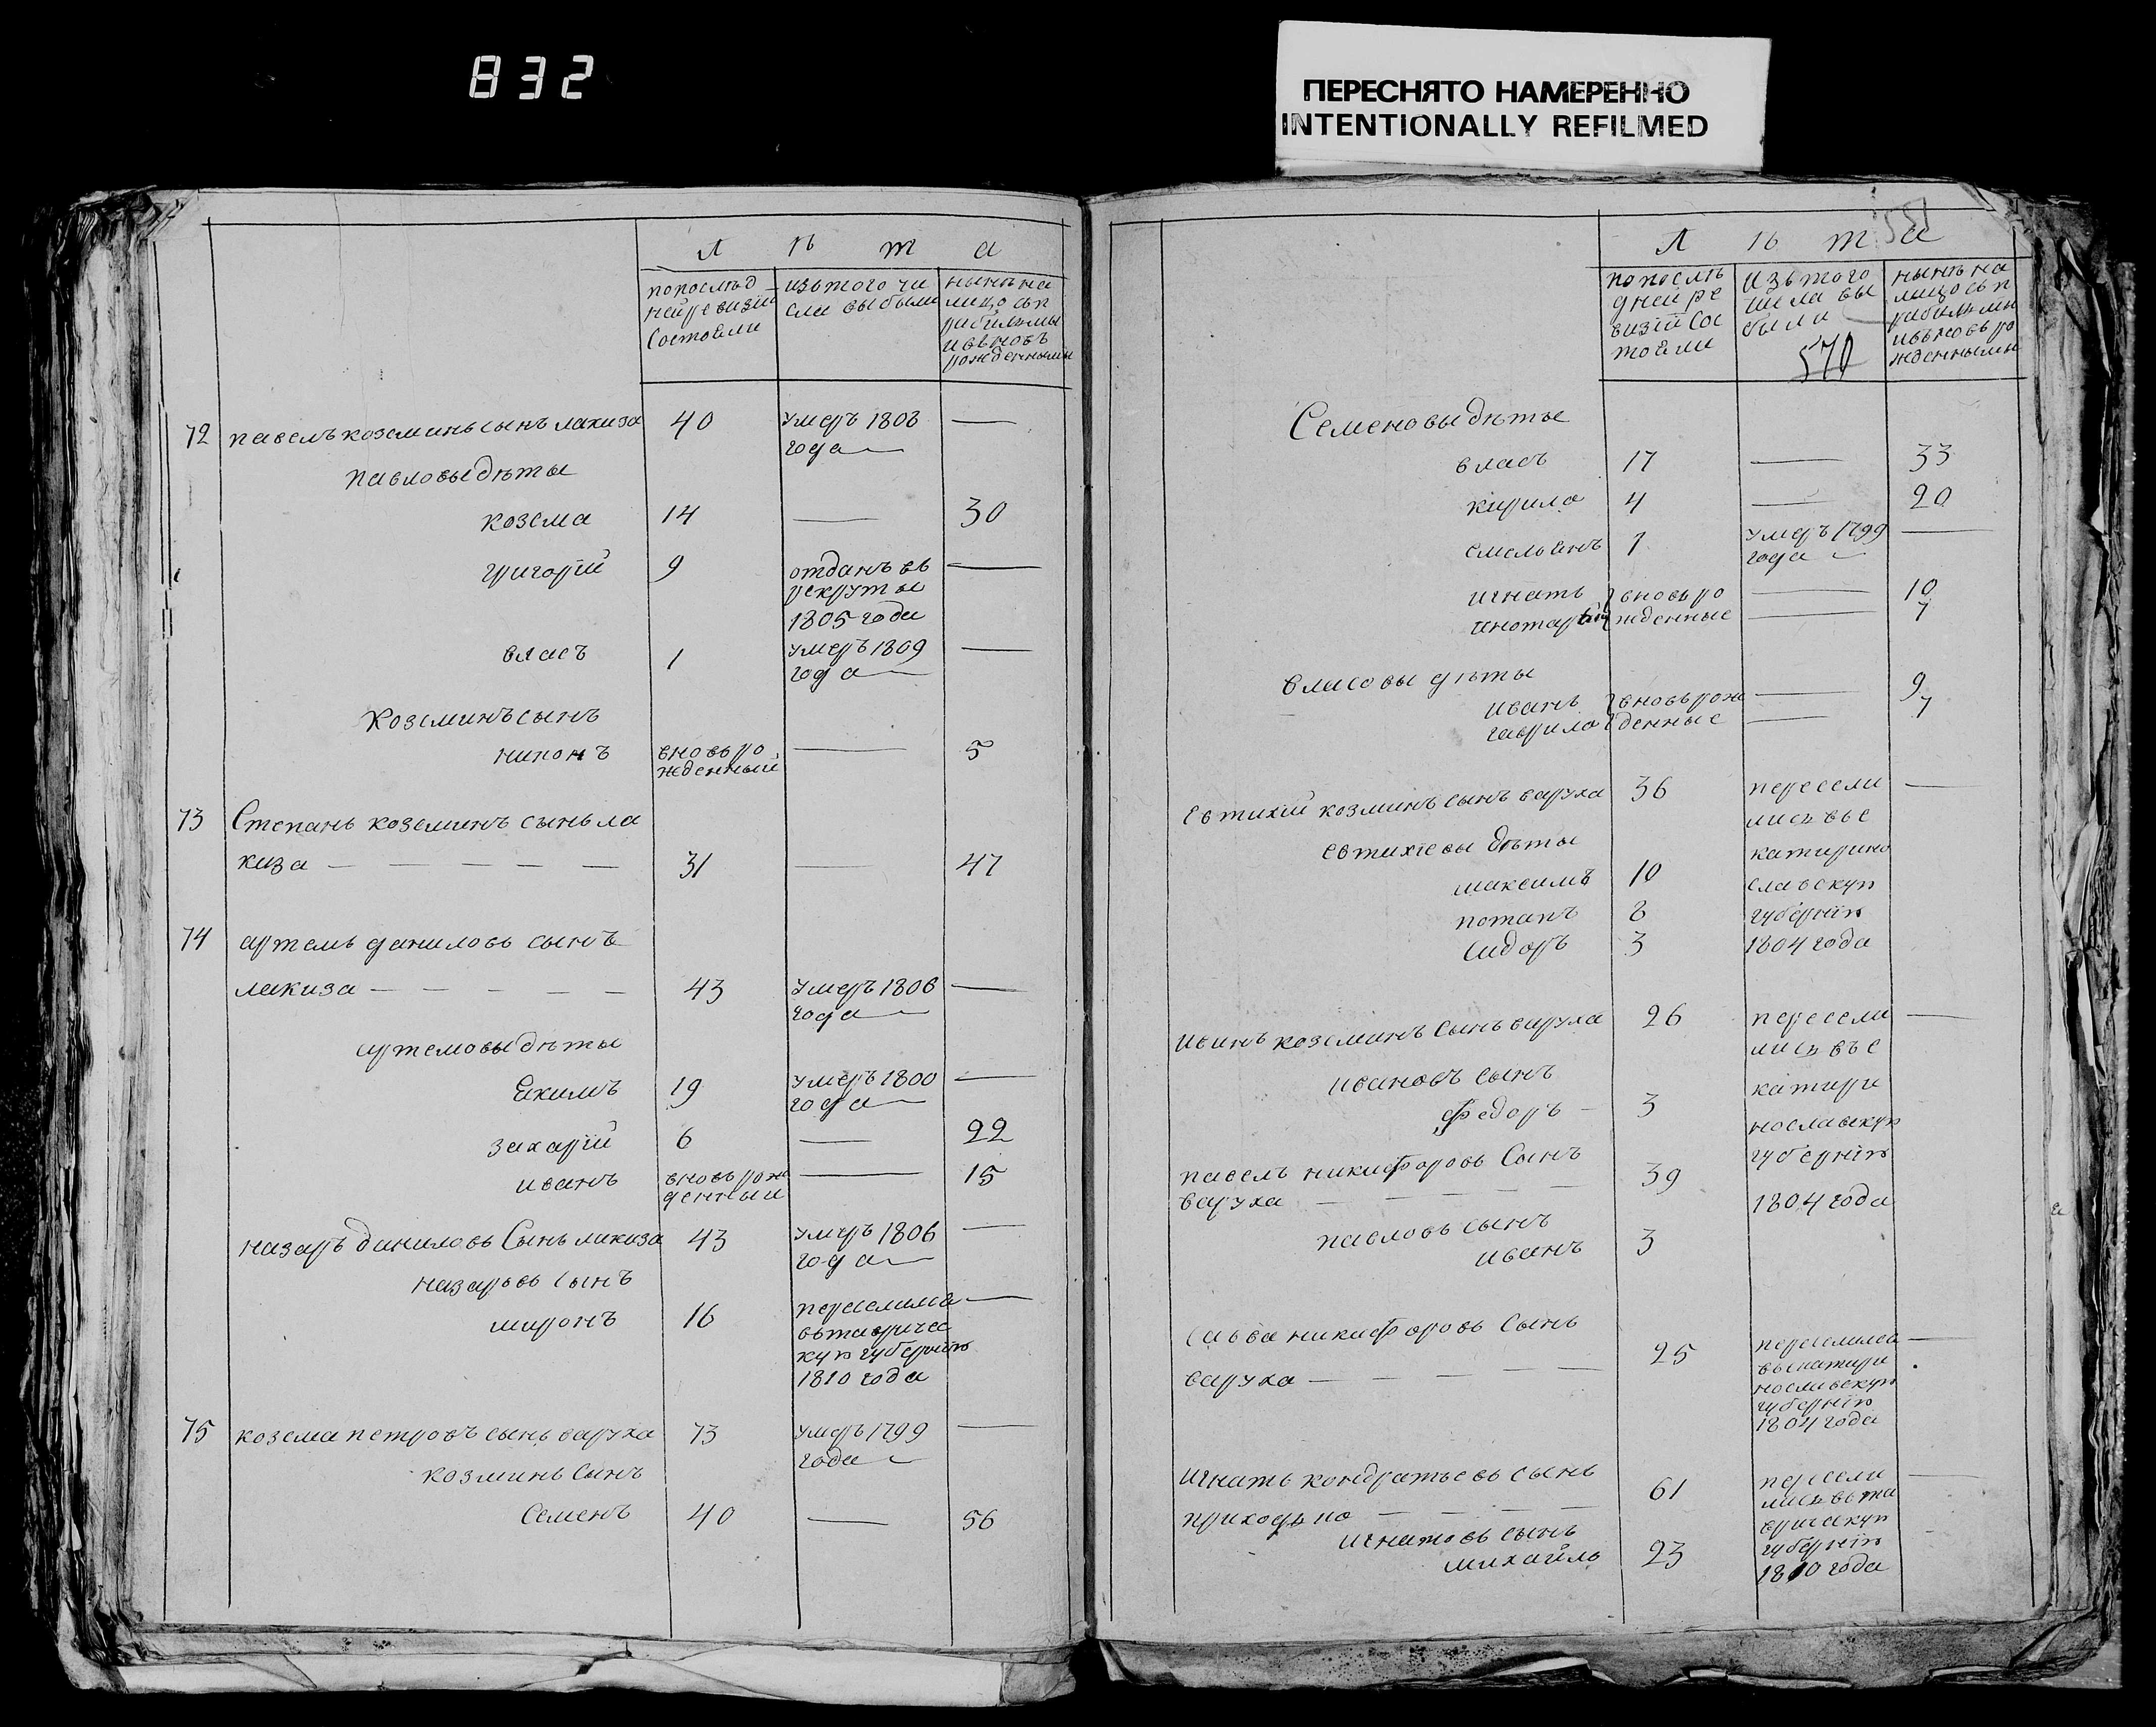 832
ПЕРЕСНЯТО НАМЕРЕННО
INTENTIONALLY REFILMED
Л ѣ т а
попослѣд
ней ревизіи
Состояли
изътого чи
сла выбыли
нынѣ на
лицо съп
рибылымы
ивьновъ
рожденными
72 павелъ козминъ сынъ лакиза 40 умеръ 1808 —
года
павловы дѣты
козма 14 — 30
григорій 9 отданъ въ —
рекруты
1805 года
власъ 1 умеръ 1809 —
года
Козминъ сынъ
нипонъ вновь ро — 5
жденный
73 Степанъ козминъ сынъ ла
киза — — — — — 31 — 47
74 артемъ даниловъ сынъ
лакиза — — — — — 43 умеръ 1806 —
года
артемовы дѣты
Екимъ 19 умеръ 1800 —
года
захарій 6 — 22
иванъ вновь рож — 15
денный
назаръ даниловъ Сынъ лакиза 43 умеръ 1806 —
года
назаровъ сынъ
миронъ 16 переселился —
вътавричес
кую губернію
1810 года
75 козма петровъ сынъ варуха 73 умеръ 1799 —
года
козминъ сынъ
Семенъ 40 — 56
551
Л ѣ т а
попослѣ
дней ре
визіи Сос
тояли
изътого
числа вы
были
570
нынѣ на
лицо съп
рибылыми
ивьновь ро
жденными
Семеновы дѣты
власъ 17 — 33
кирило 4 — 20
емельянъ 1 умеръ 1799 —
года
игнатъ вновь ро — 10
жденные — 7
власовы дѣты
иванъ вновь рож — 9
гаврило денные — 7
Евтихій козминъ сынъ варуха 36 пересели —
лись въе
евтихіевы дѣты катирино
максимъ 10 славскую
потапъ 8 губернію
Сидоръ 3 1804 года
иванъ козминъ сынъ варуха 26 пересели —
лись въе
ивановъ сынъ катири
федоръ — 3 нославскую
губернію
павелъ никифоровъ Сынъ 39
варуха — — — — — 1804 года
павловъ сынъ
иванъ 3
Савва никифоровъ Сынъ
варуха — — — — — 25 переселился —
въкатири
нославскую
губернію
1804 года
игнатъ кондратьевъ сынъ пересели —
приходько — — — — 61 лись въта
вричскую
игнатовъ сынъ губернію
михайло 23 1810 года